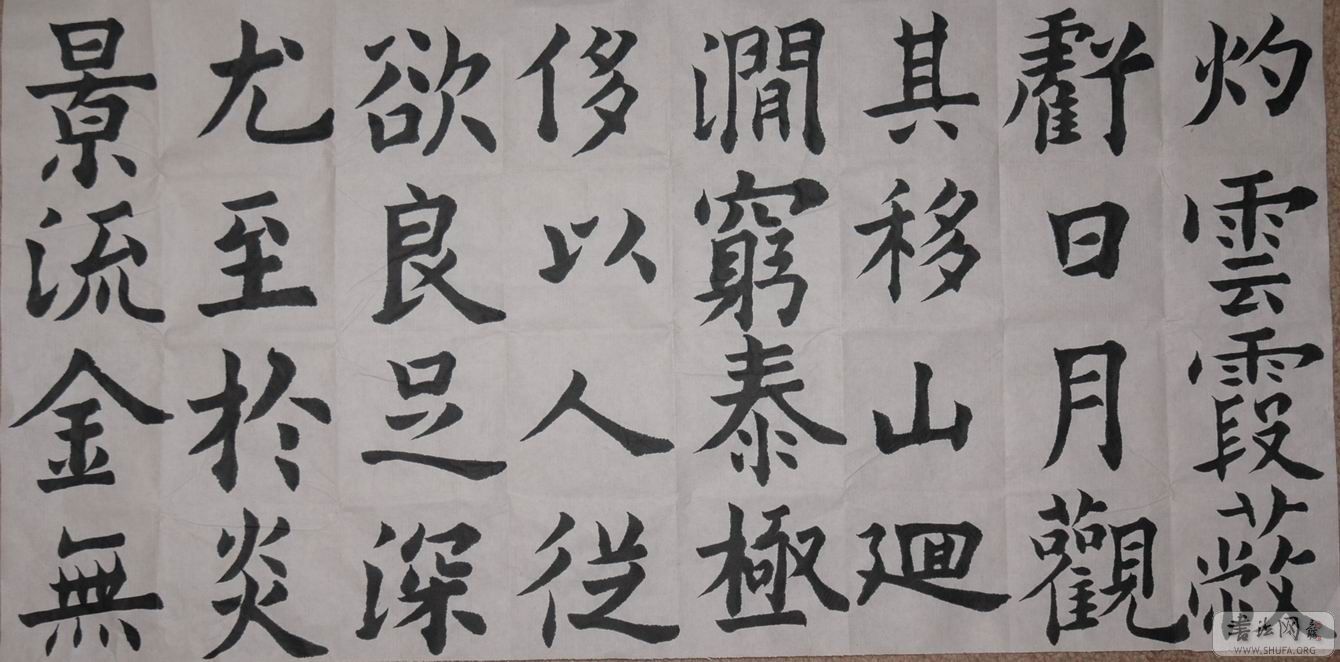 灼雲霞蔽
虧日月觀
其移山廻
澗窮泰極
侈以人從
欲良足深
尤至於炎
景流金無
書法网
WWW.SHUFA.ORG